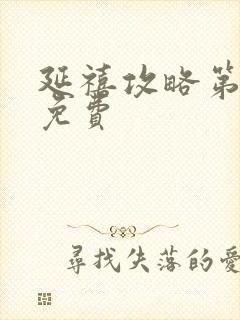 延禧攻略第
免費
尋找失落的愛